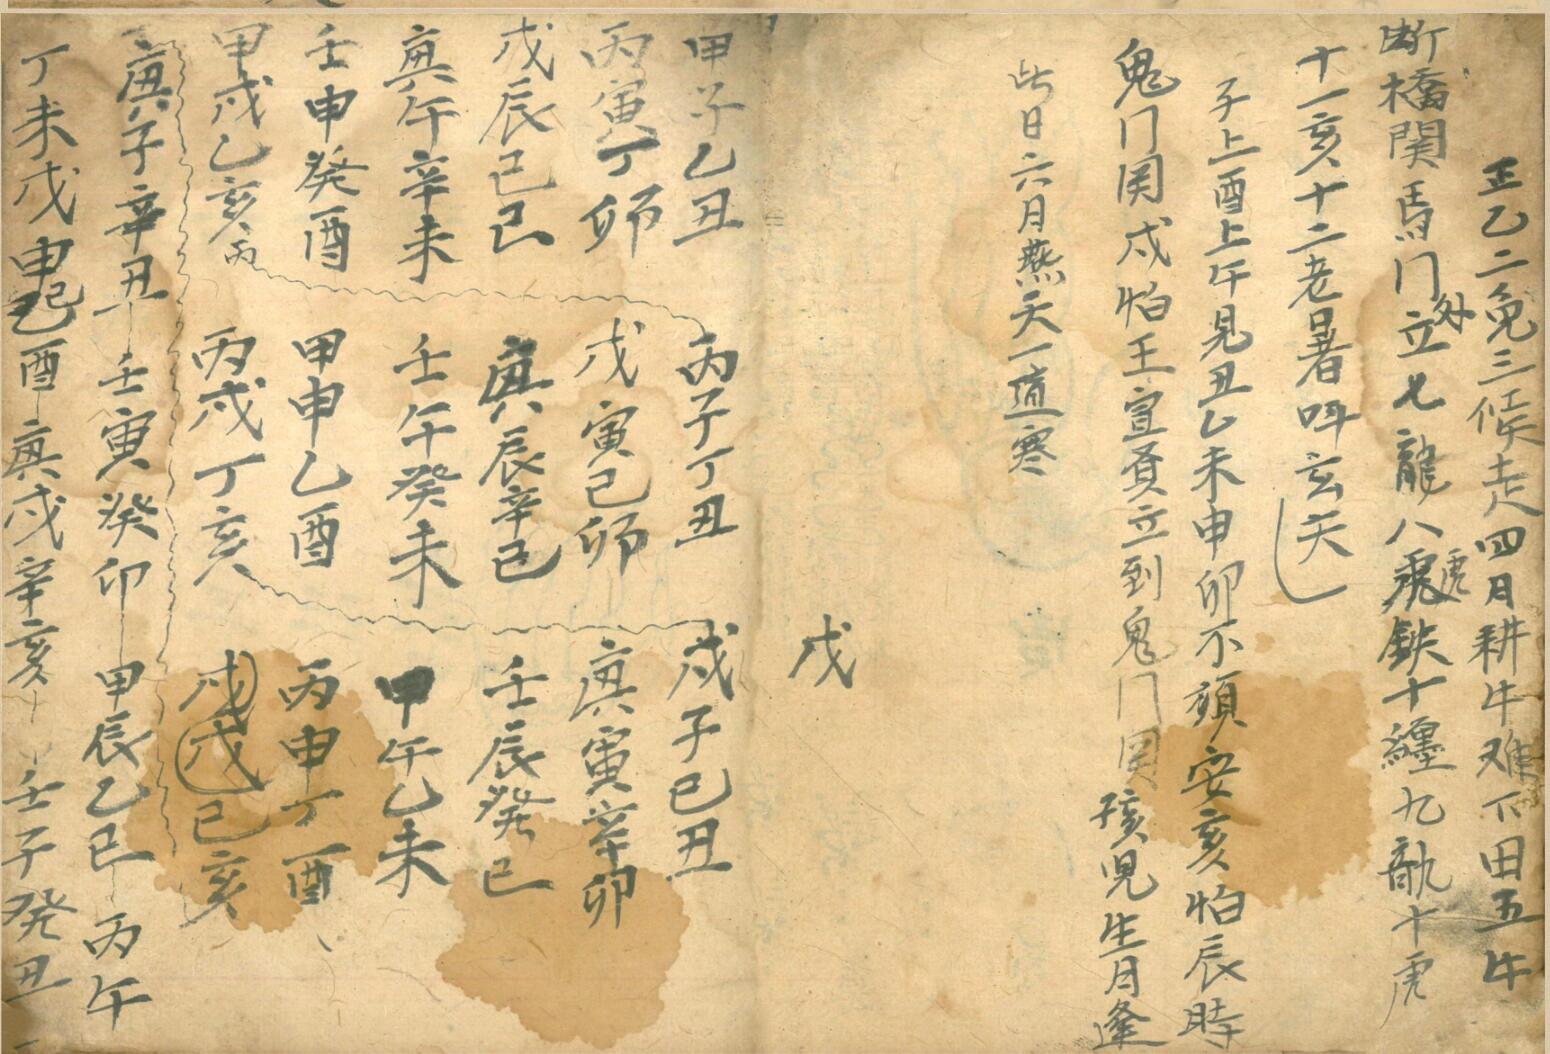 正乙二兔三候走四月耕牛难下田五牛
断橋関馬门外立七龍八飛虎鉄十纏九
十一亥十二老暑呌玄天
子上酉上午見丑乙未申卯不須安亥怕辰時
鬼门関戍怕王宣立到鬼门関孩児生月逢
此日六月燕天一道寒
戊
甲子乙丑
丙寅丁卯
戊辰己巳
庚午辛未
壬申癸酉
甲戌乙亥丙
丙子丁丑
戊寅己卯
庚辰辛己
壬午癸未
甲申乙酉
丙戌丁亥
戊子己丑
庚寅辛卯
壬辰癸己
甲午乙未
丙申丁酉
戊戊己亥
庚子辛丑壬寅癸卯甲辰乙巳丙午
丁未戊申己酉庚戌辛亥壬子癸丑